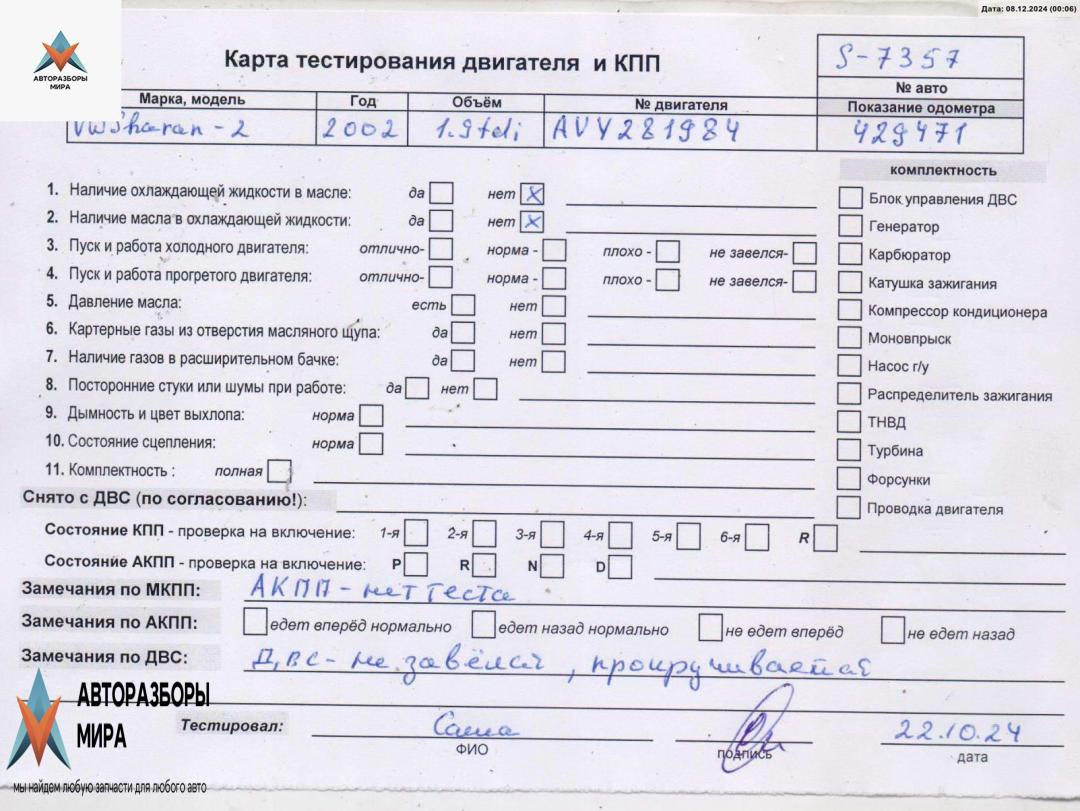 Дата: 08.12.2024 (00:06)
АВТОРАЗБОРЫ
МИРА
Карта тестирования двигателя и КПП
S-7357
№ авто
Марка, модель Год Объём № двигателя Показание одометра
VW Sharan - 2 2002 1.9 tdi AVY281984 429471
комплектность
1. Наличие охлаждающей жидкости в масле: да нет X
2. Наличие масла в охлаждающей жидкости: да нет X
3. Пуск и работа холодного двигателя: отлично- норма - плохо - не завелся-
4. Пуск и работа прогретого двигателя: отлично- норма - плохо - не завелся-
5. Давление масла: есть нет
6. Картерные газы из отверстия масляного щупа: да нет
7. Наличие газов в расширительном бачке: да нет
8. Посторонние стуки или шумы при работе: да нет
9. Дымность и цвет выхлопа: норма
10. Состояние сцепления: норма
11. Комплектность : полная
Блок управления ДВС
Генератор
Карбюратор
Катушка зажигания
Компрессор кондиционера
Моновпрыск
Насос г/у
Распределитель зажигания
ТНВД
Турбина
Форсунки
Проводка двигателя
Снято с ДВС (по согласованию!):
Состояние КПП - проверка на включение: 1-я 2-я 3-я 4-я 5-я 6-я R
Состояние АКПП - проверка на включение: P R N D
Замечания по МКПП: АКПП - нет теста
Замечания по АКПП: едет вперёд нормально едет назад нормально не едет вперёд не едет назад
Замечания по ДВС: ДВС - не завёлся, прокручивается
АВТОРАЗБОРЫ
МИРА
мы найдем любую запчасти для любого авто
Тестировал: Саша 22.10.24
ФИО подпись дата